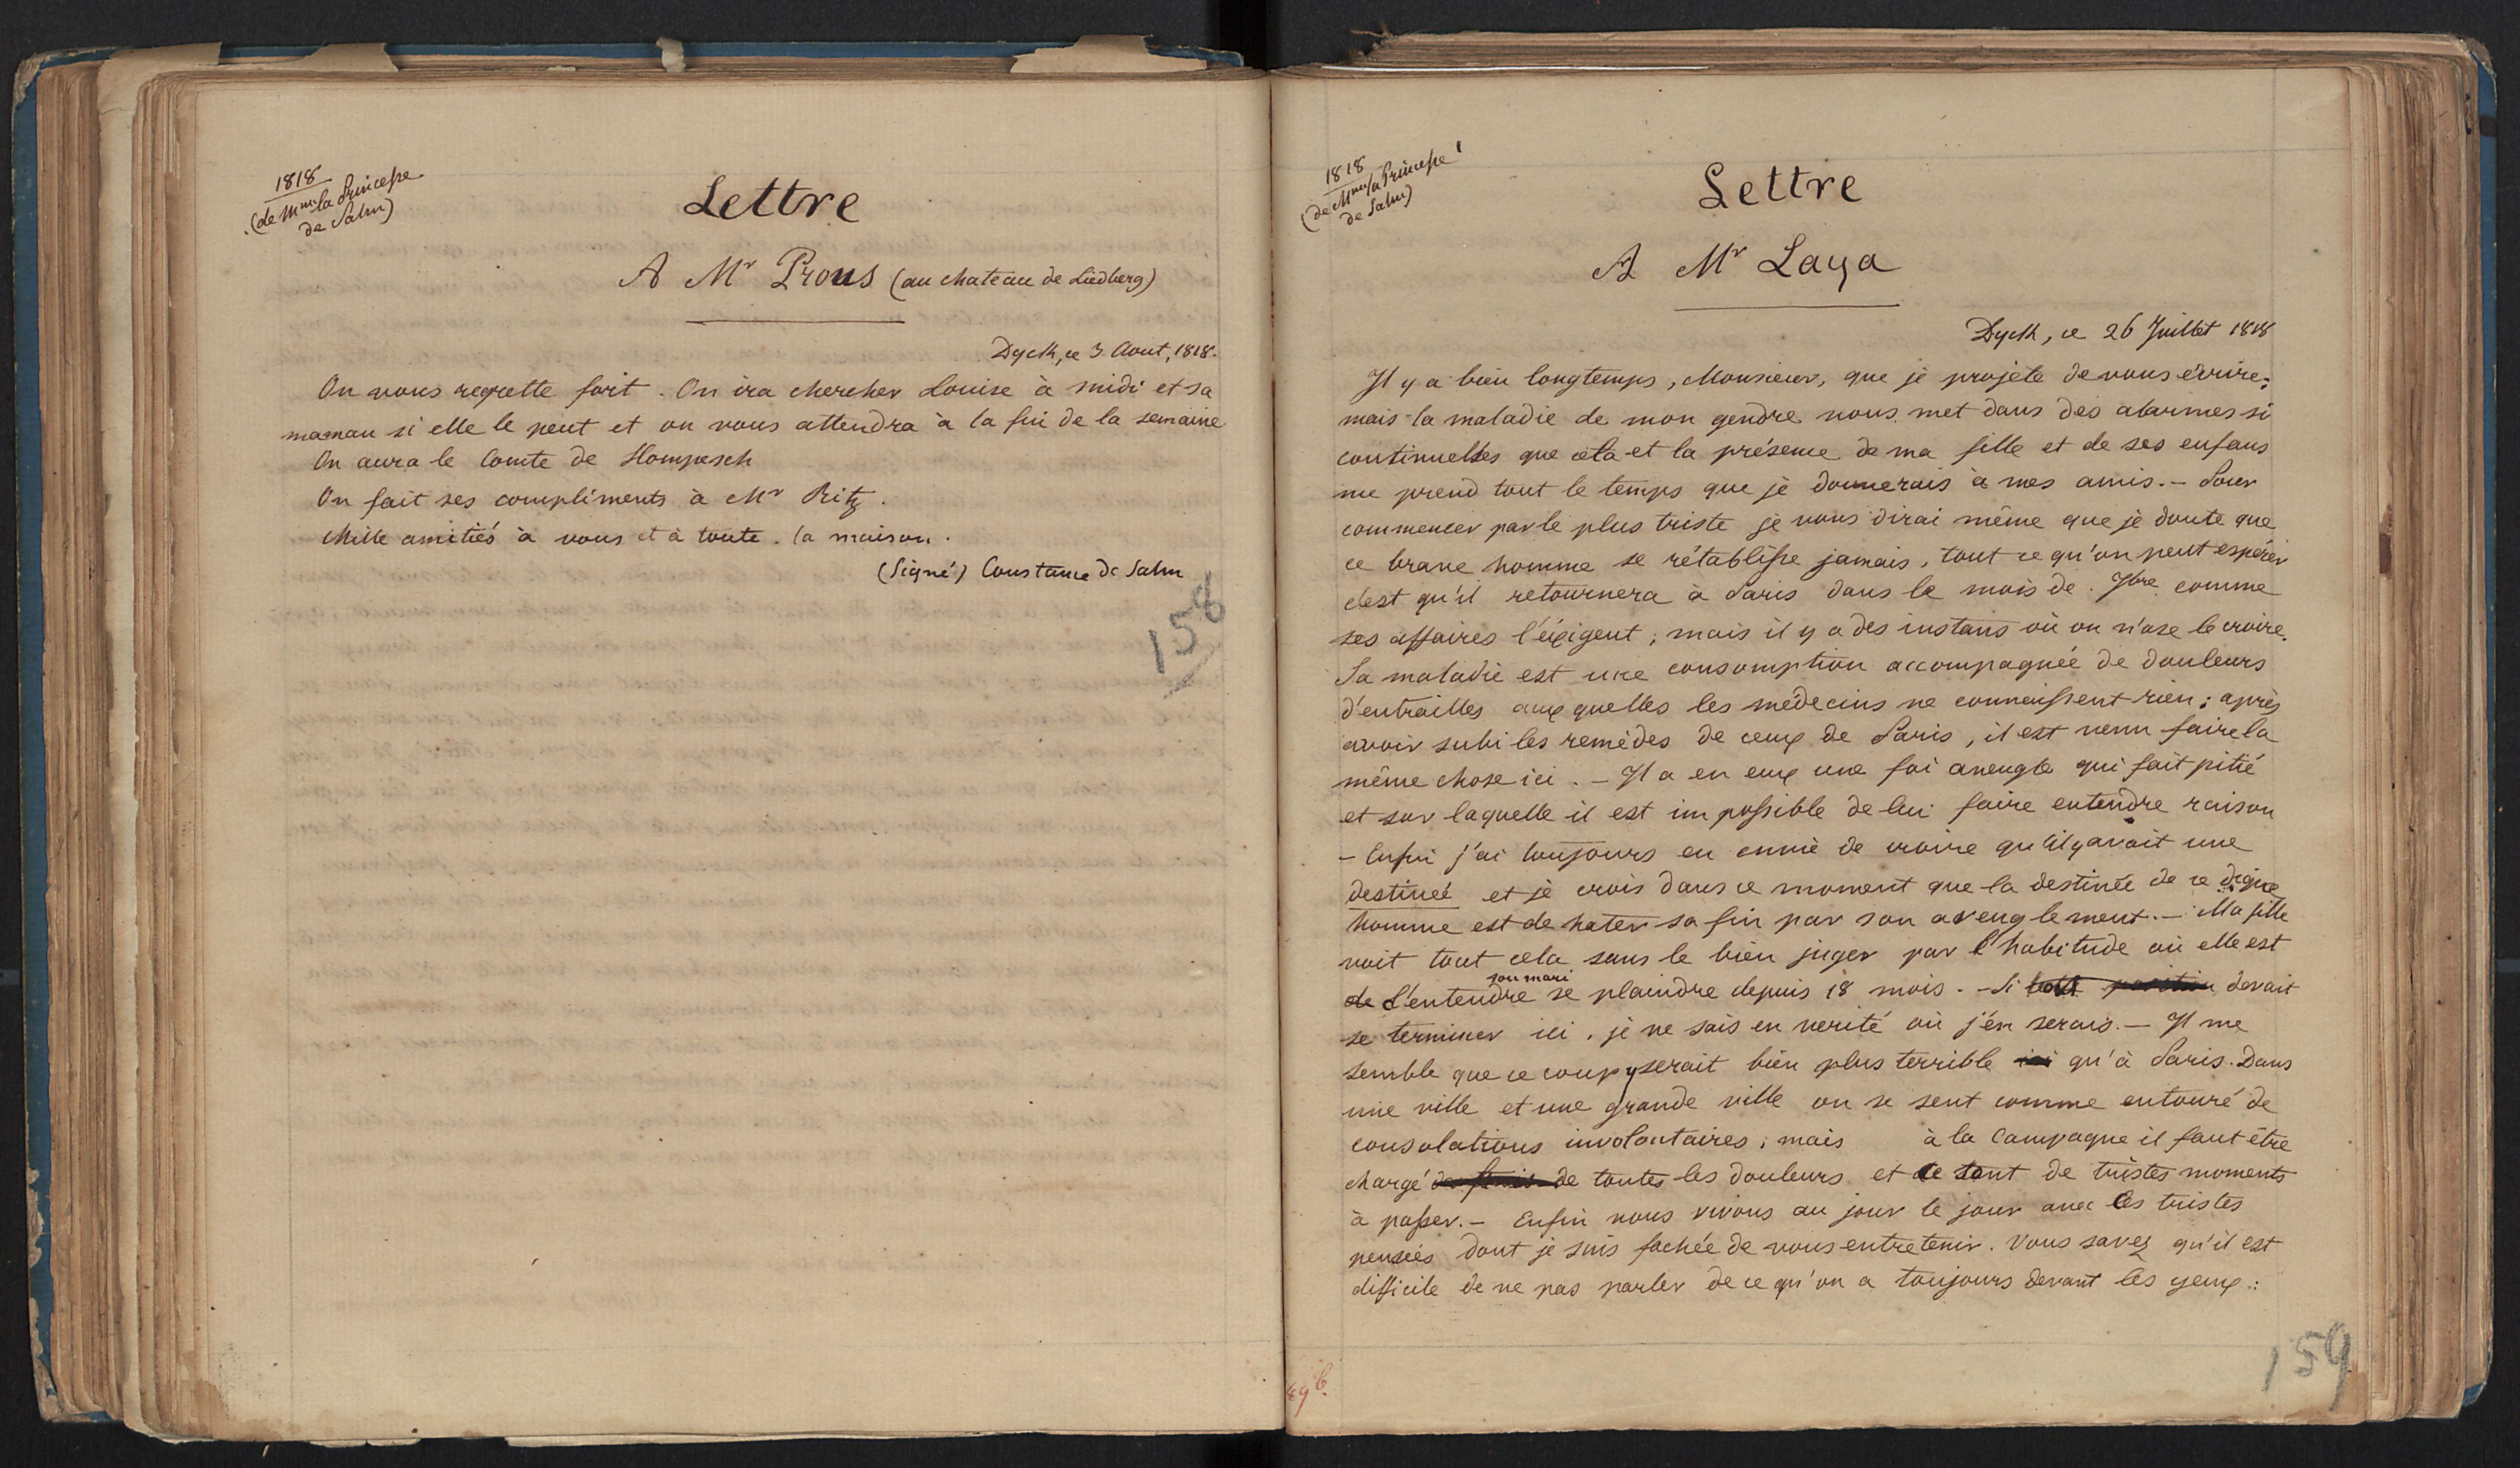 1818
(de Mme la Princesse
de Salm)
Lettre
A Mr Prous (au chateau de Liedberg)
Dyck, ce 3 Aout, 1818.
On vous regrette fort. On ira chercher Louise à midi et sa
maman si elle le peut et on vous attendra à la fin de la semaine
On aura le Comte de Hompesch
On fait ses compliments à Mr Ritz.
Mille amitiés à vous et à toute la maison.
(Signé) Constance de Salm
158
1818
(de Mme la Princesse
de Salm)
Lettre
A Mr Laya
Dyck, ce 26 Juillet 1818
Il y a bien longtemps, Monsieur, que je projète de vous écrire;
mais la maladie de mon gendre nous met dans des alarmes si
continuelles que cela et la présence de ma fille et de ses enfans
me prend tout le temps que je donnerais à mes amis. – Pour
commencer par le plus triste je vous dirai même que je doute que
ce brave homme se rétablisse jamais, tout ce qu'on peut espérer
c'est qu'il retournera à Paris dans le mois de 7bre comme
ses affaires l'éxigent; mais il y a des instans où on n'ose le croire.
Sa maladie est une consomption accompagnée de douleurs
d'entrailles auxquelles les médecins ne connaissent rien; après
avoir subi les remèdes de ceux de Paris, il est venu faire la
même chose ici. – Il a en eux une foi aveugle qui fait pitié
et sur laquelle il est impossible de lui faire entendre raison
– Enfin j'ai toujours eu envie de croire qu'il y avait une
destineé et je crois dans ce moment que la destinée de ce digne
homme est de hater sa fin par son aveuglement. – Ma fille
voit tout cela sans le bien juger par l'habitude où elle est
son mari
de l'entendre se plaindre depuis 18 mois. – Si tout devait
se terminer ici, je ne sais en verité où j'en serais. – Il me
semble que ce coup y serait bien plus terrible ici qu'à Paris. Dans
une ville et une grande ville on se sent comme entouré de
consolations involontaires; mais à la Campagne il faut être
chargé de toutes les douleurs et ce sont de tristes moments
à passer. – Enfin nous vivons au jour le jour avec les tristes
pensées dont je suis fachée de vous entretenir. Vous savez qu'il est
difficile de ne pas parler de ce qu'on a toujours devant les yeux:
89b.
159